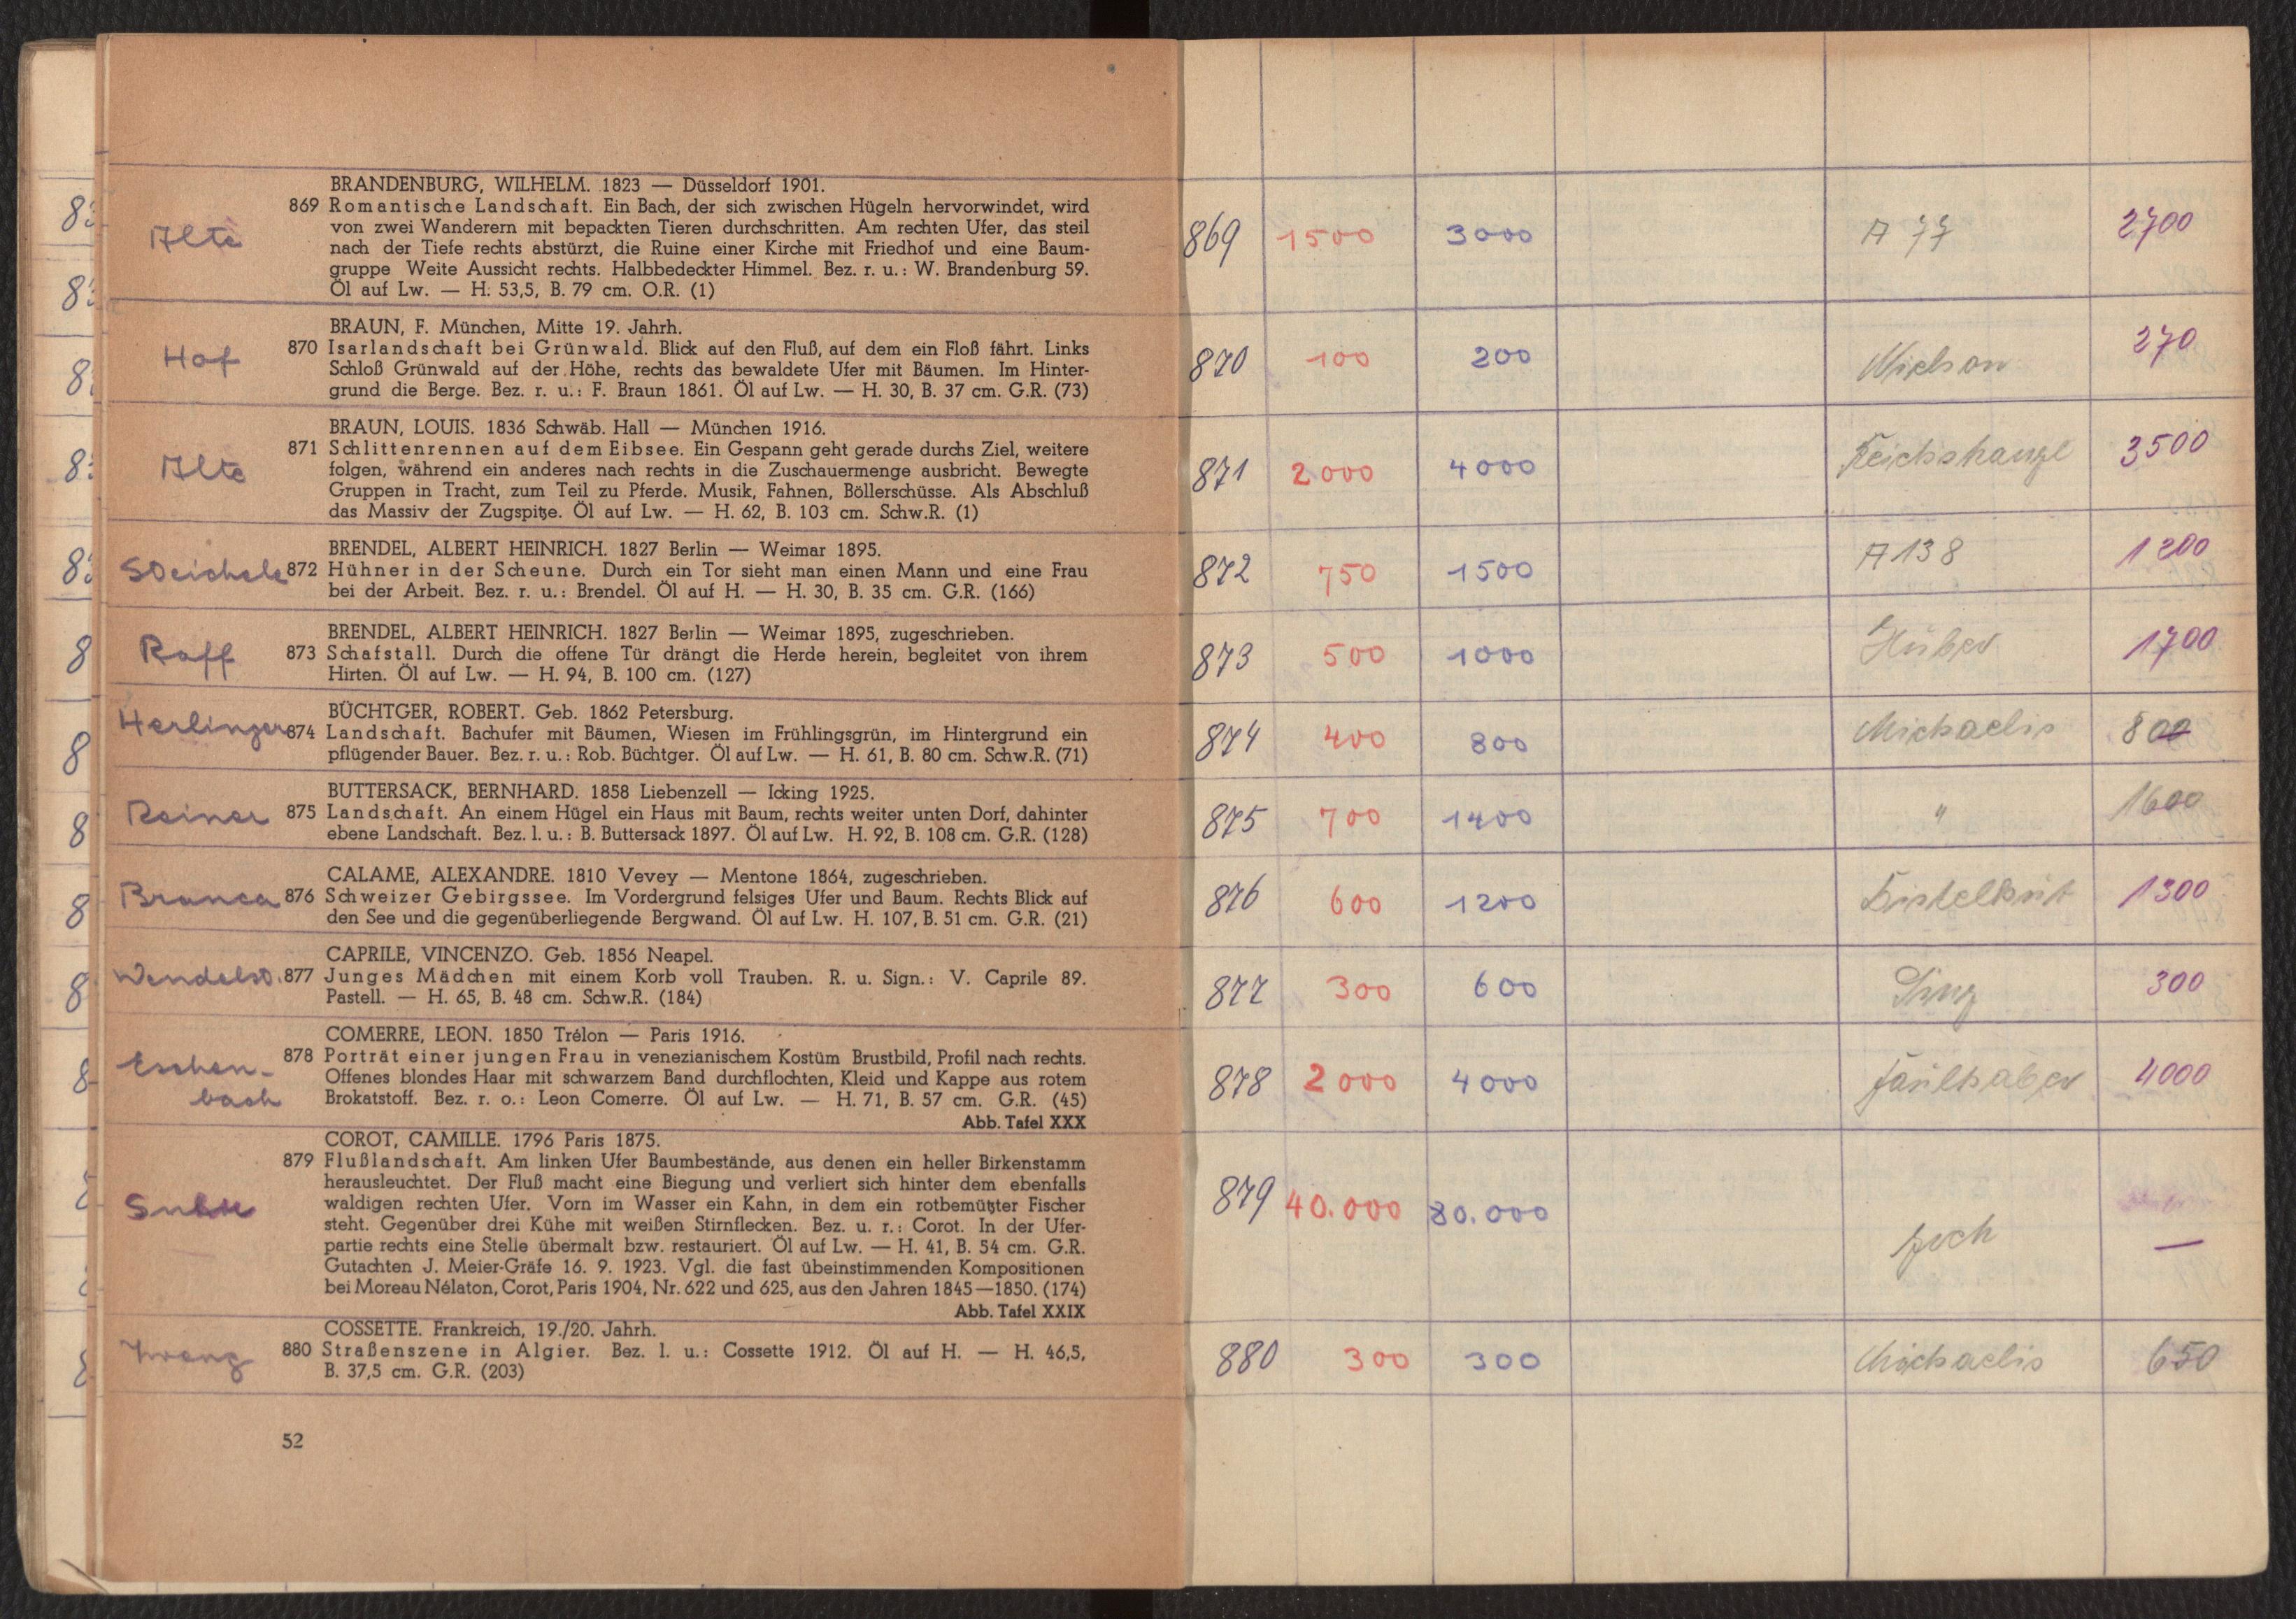 BRANDENBURG, WILHELM. 1823 — Düsseldorf 1901.
869 Romantische Landschaft. Ein Bach, der sich zwischen Hügeln hervorwindet, wird
von zwei Wanderern mit bepackten Tieren durchschritten. Am rechten Ufer, das steil
nach der Tiefe rechts abstürzt, die Ruine einer Kirche mit Friedhof und eine Baum-
gruppe Weite Aussicht rechts. Halbbedeckter Himmel. Bez. r. u.: W. Brandenburg 59.
Öl auf Lw. — H. 53,5, B. 79 cm. O.R. (1)
Hof
BRAUN, F. München, Mitte 19. Jahrh.
870 Isarlandschaft bei Grünwald. Blick auf den Fluß, auf dem ein Floß fährt. Links
Schloß Grünwald auf der Höhe, rechts das bewaldete Ufer mit Bäumen. Im Hinter-
grund die Berge. Bez. r. u.: F. Braun 1861. Öl auf Lw. — H. 30, B. 37 cm. G.R. (73)
BRAUN, LOUIS. 1836 Schwäb. Hall — München 1916.
871 Schlittenrennen auf dem Eibsee. Ein Gespann geht gerade durchs Ziel, weitere
folgen, während ein anderes nach rechts in die Zuschauermenge ausbricht. Bewegte
Gruppen in Tracht, zum Teil zu Pferde. Musik, Fahnen, Böllerschüsse. Als Abschluß
das Massiv der Zugspitze. Öl auf Lw. — H. 62, B. 103 cm. Schw.R. (1)
BRENDEL, ALBERT HEINRICH. 1827 Berlin — Weimar 1895.
872 Hühner in der Scheune. Durch ein Tor sieht man einen Mann und eine Frau
bei der Arbeit. Bez. r. u.: Brendel. Öl auf H. — H. 30, B. 35 cm. G.R. (166)
Raff
BRENDEL, ALBERT HEINRICH. 1827 Berlin — Weimar 1895, zugeschrieben.
873 Schafstall. Durch die offene Tür drängt die Herde herein, begleitet von ihrem
Hirten. Öl auf Lw. — H. 94, B. 100 cm. (127)
Herlinger
BÜCHTGER, ROBERT. Geb. 1862 Petersburg.
874 Landschaft. Bachufer mit Bäumen, Wiesen im Frühlingsgrün, im Hintergrund ein
pflügender Bauer. Bez. r. u.: Rob. Büchtger. Öl auf Lw. — H. 61, B. 80 cm. Schw.R. (71)
Reiner
BUTTERSACK, BERNHARD. 1858 Liebenzell — Icking 1925.
875 Landschaft. An einem Hügel ein Haus mit Baum, rechts weiter unten Dorf, dahinter
ebene Landschaft. Bez. l. u.: B. Buttersack 1897. Öl auf Lw. H. 92, B. 108 cm. G.R. (128)
Branca
CALAME, ALEXANDRE. 1810 Vevey — Mentone 1864, zugeschrieben.
876 Schweizer Gebirgssee. Im Vordergrund felsiges Ufer und Baum. Rechts Blick auf
den See und die gegenüberliegende Bergwand. Öl auf Lw. H. 107, B. 51 cm. G.R. (21)
CAPRILE, VINCENZO. Geb. 1856 Neapel.
877 Junges Mädchen mit einem Korb voll Trauben. R. u. Sign.: V. Caprile 89.
Pastell. — H. 65, B. 48 cm. Schw.R. (184)
Eschen-
bach
COMERRE, LEON. 1850 Trélon — Paris 1916.
878 Porträt einer jungen Frau in venezianischem Kostüm Brustbild, Profil nach rechts.
Offenes blondes Haar mit schwarzem Band durchflochten, Kleid und Kappe aus rotem
Brokatstoff. Bez. r. o.: Leon Comerre. Öl auf Lw. — H. 71, B. 57 cm. G.R. (45)
Abb. Tafel XXX
COROT, CAMILLE. 1796 Paris 1875.
879 Flußlandschaft. Am linken Ufer Baumbestände, aus denen ein heller Birkenstamm
herausleuchtet. Der Fluß macht eine Biegung und verliert sich hinter dem ebenfalls
waldigen rechten Ufer. Vorn im Wasser ein Kahn, in dem ein rotbemützter Fischer
steht. Gegenüber drei Kühe mit weißen Stirnflecken. Bez. u. r.: Corot. In der Ufer-
partie rechts eine Stelle übermalt bzw. restauriert. Öl auf Lw. — H. 41, B. 54 cm. G.R.
Gutachten J. Meier-Gräfe 16. 9. 1923. Vgl. die fast übeinstimmenden Kompositionen
bei Moreau Nélaton, Corot, Paris 1904, Nr. 622 und 625, aus den Jahren 1845—1850. (174)
Abb. Tafel XXIX
COSSETTE. Frankreich, 19./20. Jahrh.
880 Straßenszene in Algier. Bez. l. u.: Cossette 1912. Öl auf H. — H. 46,5,
B. 37,5 cm. G.R. (203)
52
869 1500 3000 A 77 2700
870 100 200 270
871 2000 4000 Reichskanzl 3500
872 750 1500 A 138 1200
873 500 1000 Huber 1700
874 400 800 Michaelis 800
875 700 1400 " 1600
876 600 1200 1300
877 300 600 300
878 2000 4000 Faulhaber 4000
879 40.000 80.000 —
880 300 300 Michaelis 650